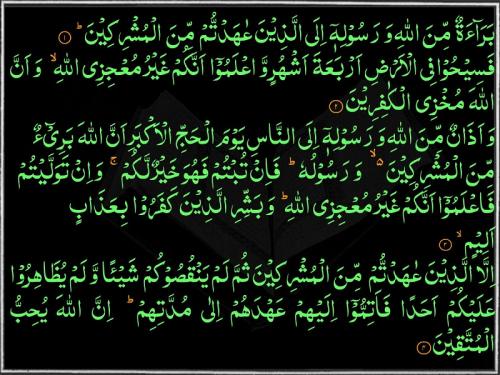 بَرَآءَةٌ مِّنَ اللّٰهِ وَ رَسُوْلِهٖۤ اِلَى الَّذِيْنَ عٰهَدْتُّمْ مِّنَ الْمُشْرِكِيْنَ ؕ ۱
فَسِيْحُوْا فِى الْاَرْضِ اَرْبَعَةَ اَشْهُرٍ وَّ اعْلَمُوْۤا اَنَّكُمْ غَيْرُ مُعْجِزِى اللّٰهِ ۙ وَ اَنَّ
اللّٰهَ مُخْزِى الْكٰفِرِيْنَ ۲
وَ اَذَانٌ مِّنَ اللّٰهِ وَ رَسُوْلِهٖۤ اِلَى النَّاسِ يَوْمَ الْحَجِّ الْاَكْبَرِ اَنَّ اللّٰهَ بَرِىْٓءٌ
مِّنَ الْمُشْرِكِيْنَ ۙ۵ وَ رَسُوْلُهٗ ؕ فَاِنْ تُبْتُمْ فَهُوَ خَيْرٌ لَّكُمْ ۚ وَ اِنْ تَوَلَّيْتُمْ
فَاعْلَمُوْۤا اَنَّكُمْ غَيْرُ مُعْجِزِى اللّٰهِ ؕ وَ بَشِّرِ الَّذِيْنَ كَفَرُوْا بِعَذَابٍ
اَلِيْمٍ ۙ ۳
اِلَّا الَّذِيْنَ عٰهَدْتُّمْ مِّنَ الْمُشْرِكِيْنَ ثُمَّ لَمْ يَنْقُصُوْكُمْ شَيْئًا وَّ لَمْ يُظَاهِرُوْا
عَلَيْكُمْ اَحَدًا فَاَتِمُّوْۤا اِلَيْهِمْ عَهْدَهُمْ اِلٰى مُدَّتِهِمْ ؕ اِنَّ اللّٰهَ يُحِبُّ
الْمُتَّقِيْنَ ۴